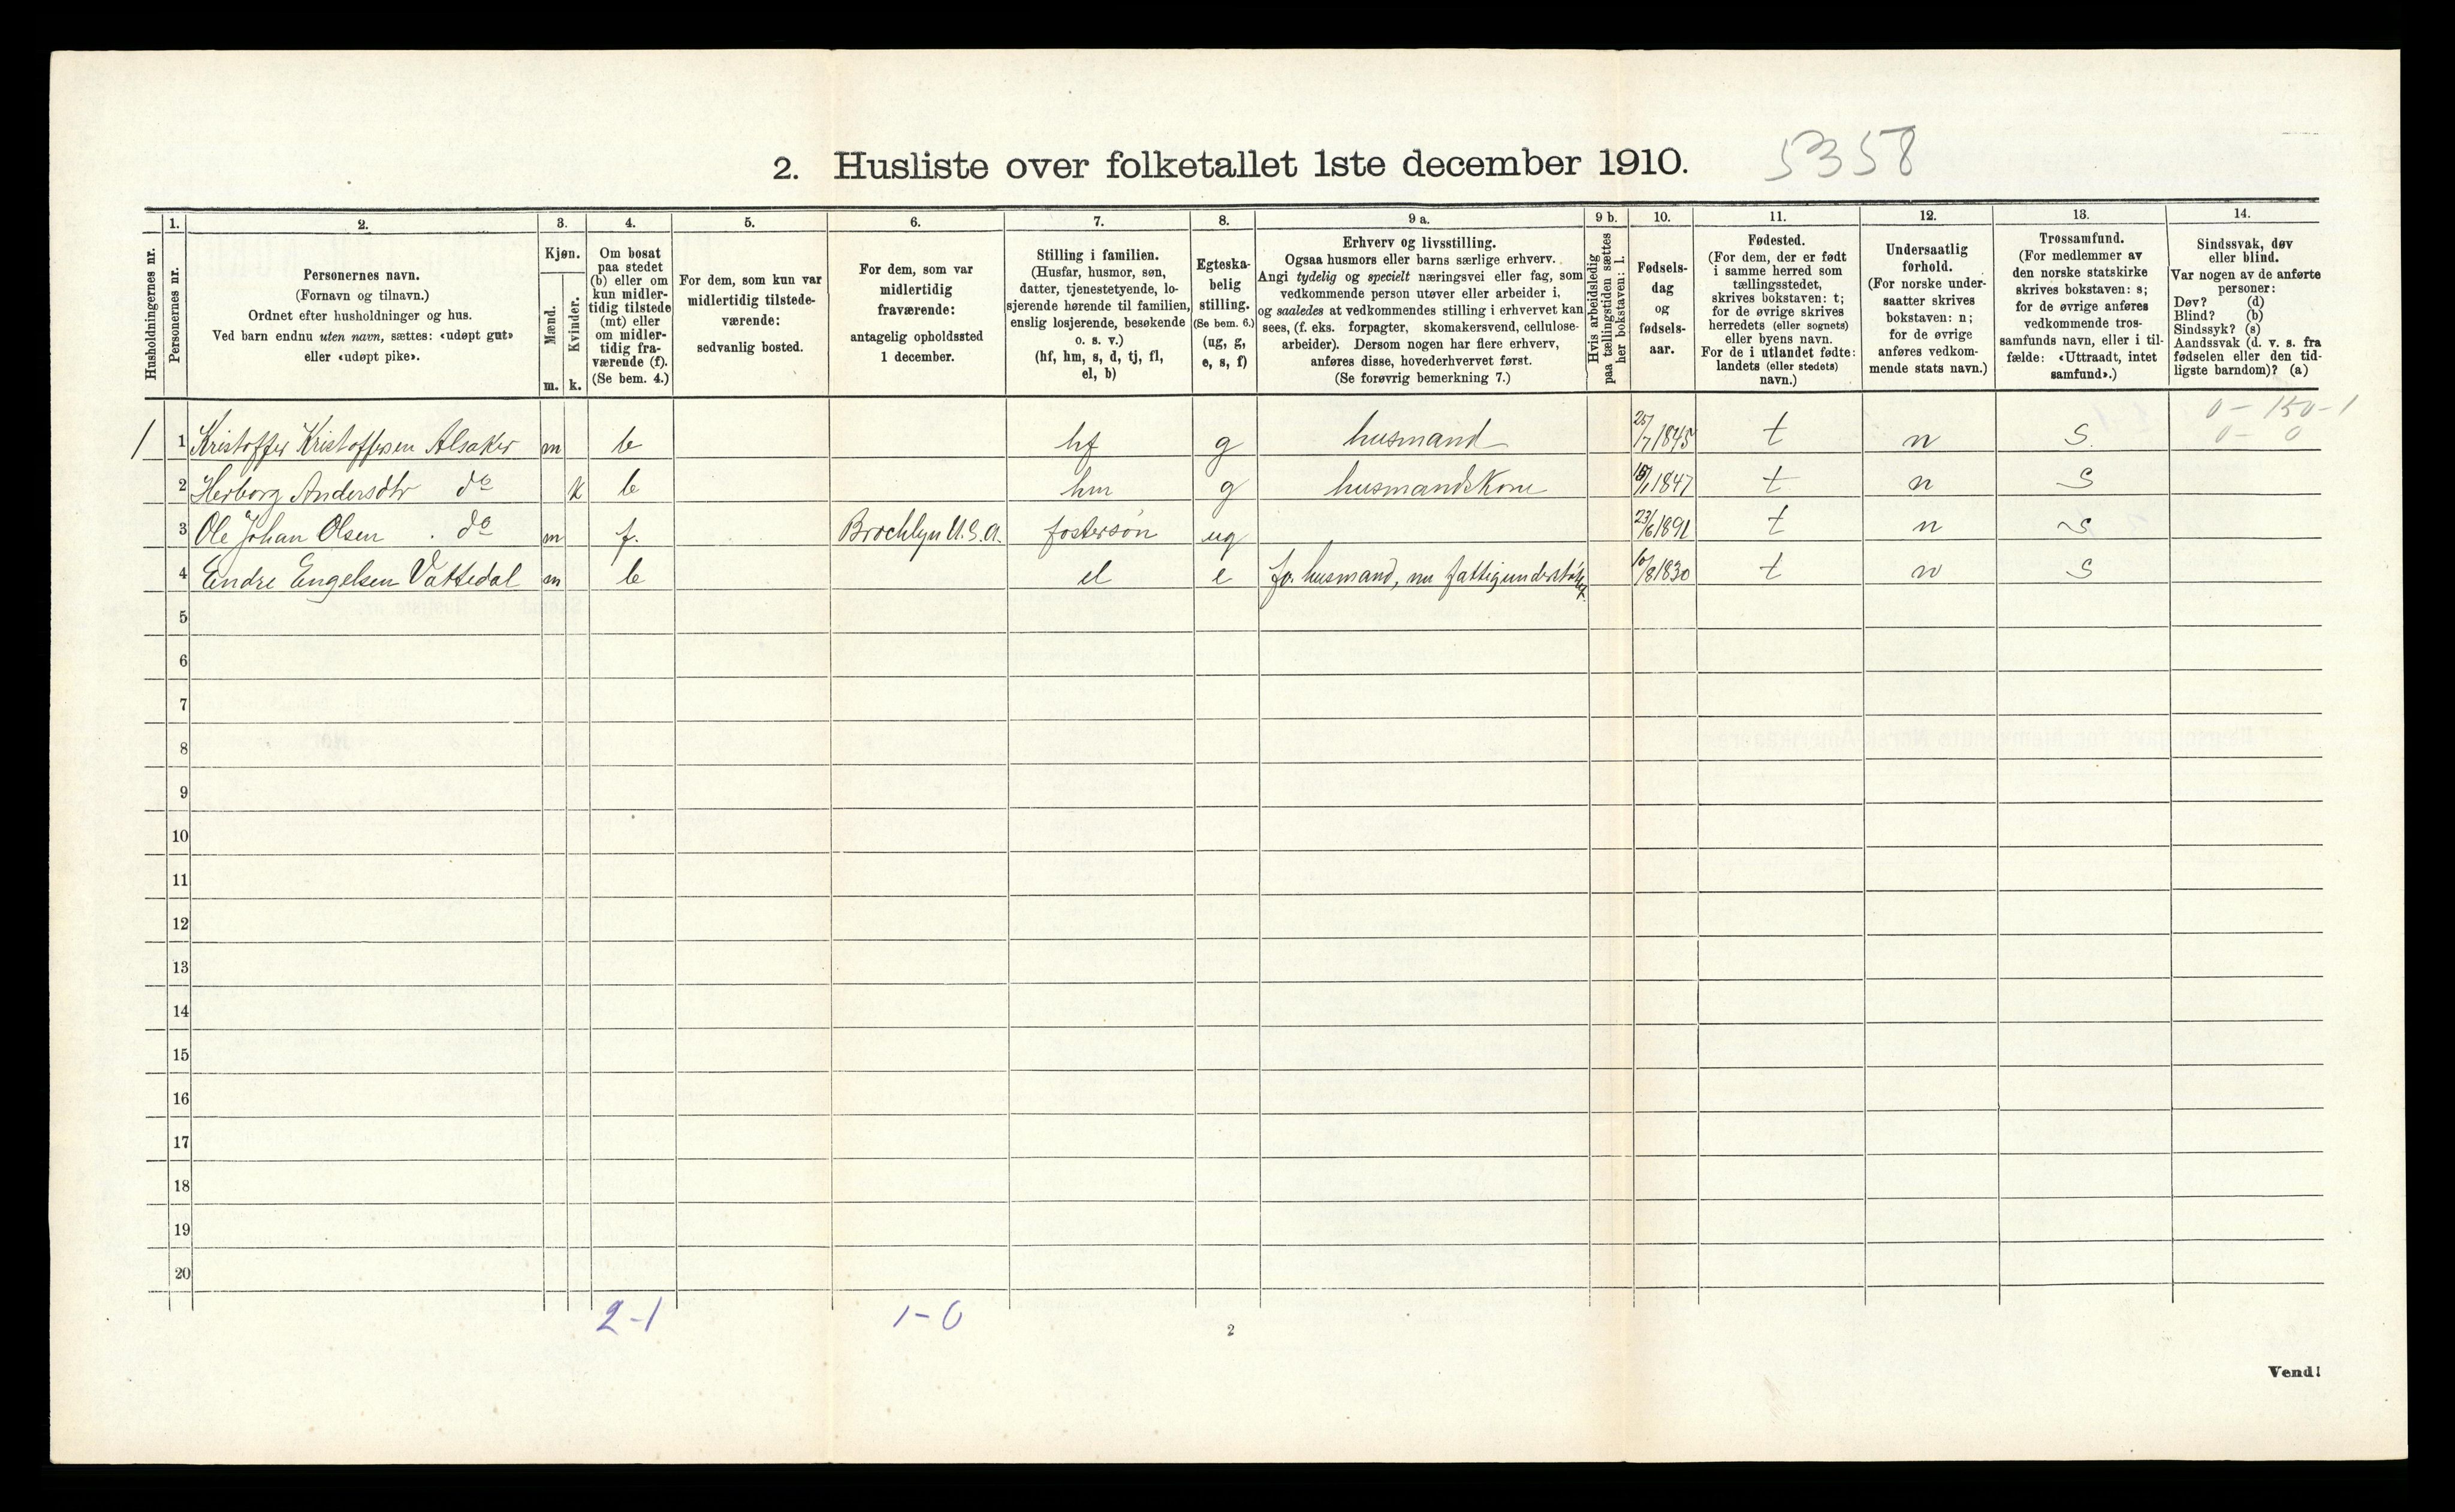 2. Husliste over folketallet 1ste december 1910. 5358
Husholdningernes nr.
1. Personernes nr.
2. Personernes navn.
(Fornavn og tilnavn.)
Ordnet efter husholdninger og hus.
Ved barn endnu uten navn, sættes: «udøpt gut»
eller «udøpt pike».
3. Kjøn.
Mænd. m.
Kvinder. k.
4. Om bosat
paa stedet
(b) eller om
kun midler-
tidig tilstede
(mt) eller
om midler-
tidig fra-
værende (f).
(Se bem. 4.)
5. For dem, som kun var
midlertidig tilstede-
værende:
sedvanlig bosted.
6. For dem, som var
midlertidig
fraværende:
antagelig opholdssted
1 december.
7. Stilling i familien.
(Husfar, husmor, søn,
datter, tjenestetyende, lo-
sjerende hørende til familien,
enslig losjerende, besøkende
o. s. v.)
(hf, hm, s, d, tj, fl,
el, b)
8. Egteska-
belig
stilling.
(Se bem. 6.)
(ug, g,
e, s, f)
9 a. Erhverv og livsstilling.
Ogsaa husmors eller barns særlige erhverv.
Angi tydelig og specielt næringsvei eller fag, som
vedkommende person utøver eller arbeider i,
og saaledes at vedkommendes stilling i erhvervet kan
sees, (f. eks. forpagter, skomakersvend, cellulose-
arbeider). Dersom nogen har flere erhverv,
anføres disse, hovederhvervet først.
(Se forøvrig bemerkning 7.)
9 b. Hvis arbeidsledig
paa tællingstiden sættes
her bokstaven: l.
10. Fødsels-
dag
og
fødsels-
aar.
11. Fødested.
(For dem, der er født
i samme herred som
tællingsstedet,
skrives bokstaven: t;
for de øvrige skrives
herredets (eller sognets)
eller byens navn.
For de i utlandet fødte:
landets (eller stedets)
navn.)
12. Undersaatlig
forhold.
(For norske under-
saatter skrives
bokstaven: n;
for de øvrige
anføres vedkom-
mende stats navn.)
13. Trossamfund.
(For medlemmer av
den norske statskirke
skrives bokstaven: s;
for de øvrige anføres
vedkommende tros-
samfunds navn, eller i til-
fælde: «Uttraadt, intet
samfund».)
14. Sindssvak, døv
eller blind.
Var nogen av de anførte
personer:
Døv? (d)
Blind? (b)
Sindssyk? (s)
Aandssvak (d. v. s. fra
fødselen eller den tid-
ligste barndom)? (a)
0 - 150 - 1
0 - 0
1 1 Kristoffer Kristoffersen Alsaker m b hf g husmand 25/7 1845 t n S.
2 Herborg Andersdtr do k b hm g husmandskone /1 1847 t n S
3 Ole Johan Olsen do m f. Brochlyn U.S.A. fostersøn ug 23/6 1891 t n S
4 Endre Engelsen Vattedal m b el e fv. husmand, nu fattigunderstøttet 10/8 1830 t n S
5
6
7
8
9
10
11
12
13
14
15
16
17
18
19
20
2-1 1-0
2
Vend!